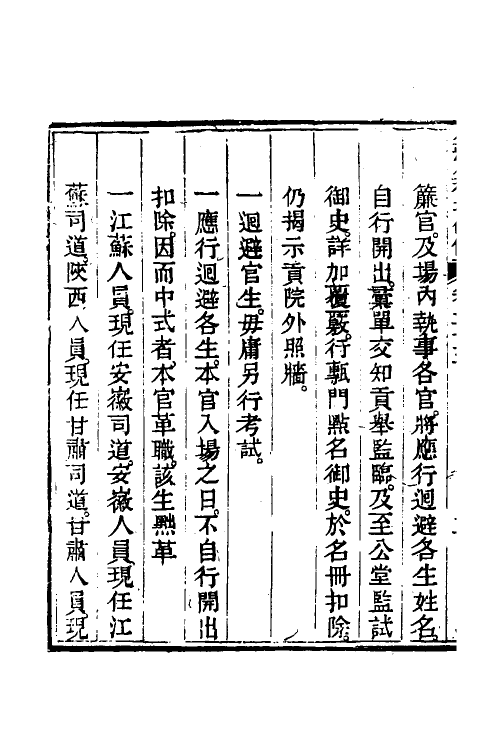 簾官。及場內執事各官。將應行迴避各生姓名。
自行開出。彙單交知貢舉監臨。及至公堂監試
御史。詳加覆覈。行甎門點名御史。於名冊扣除。
仍揭示貢院外照牆。
一迴避官生。毋庸另行考試。
一應行迴避各生。本官入場之日。不自行開出
扣除因而中式者。本官革職。該生黜革
一江蘇人員。現任安徽司道。安徽人員。現任江
蘇司道。陝西人員。現任甘肅司道。甘肅人員。現